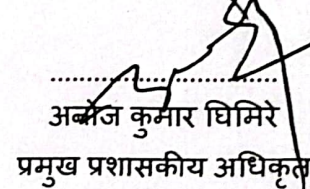 अम्बोज कुमार घिमिरे
प्रमुख प्रशासकीय अधिकृत